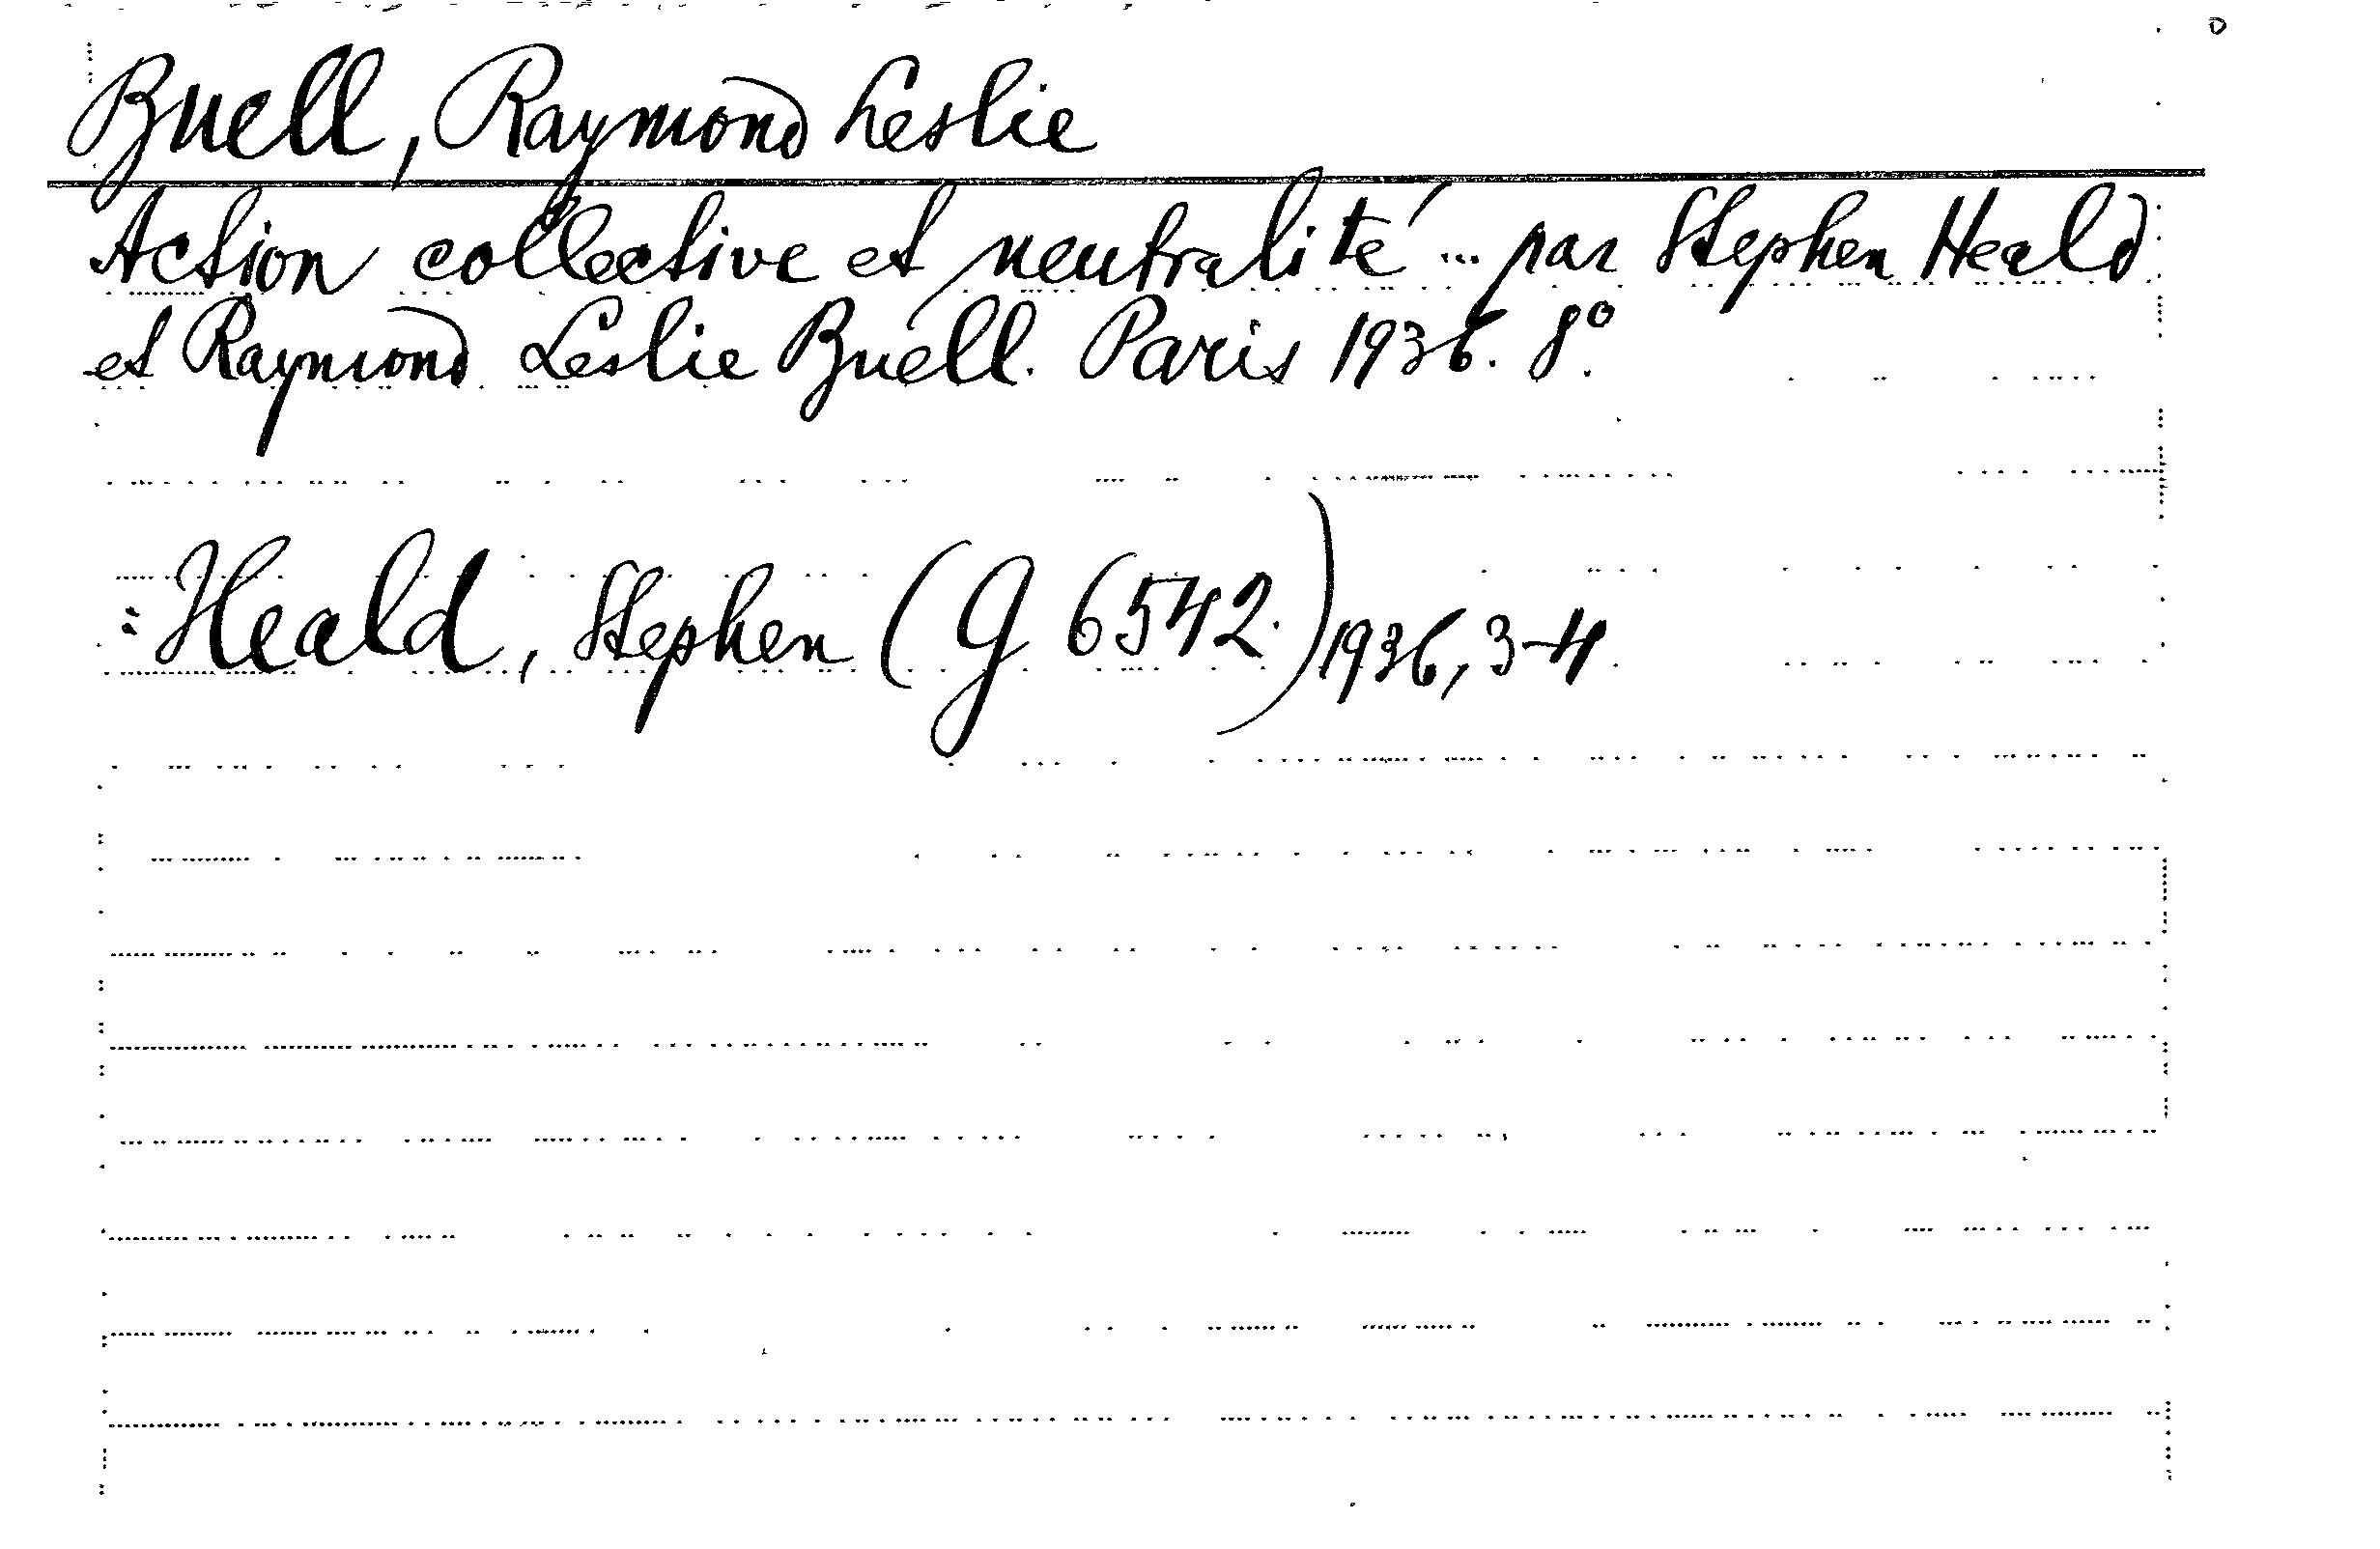 Buell, Raymond Leslie
Action collective et neutralité ... par Stephen Heald
et Raymond Leslie Buell. Paris 1936. 8°.
: Heald, Stephen (G 6542.) 1936, 3-4.